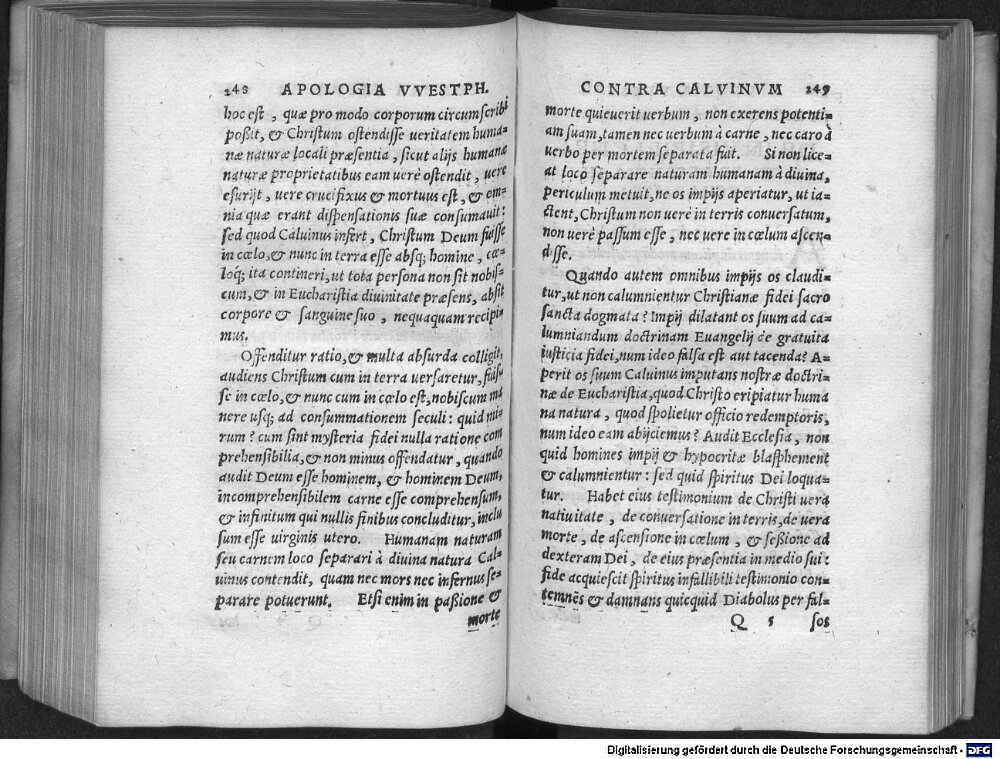 248 APOLOGIA VVESTPH.
hoc est, quæ pro modo corporum circumscribi
poßit, & Christum ostendisse ueritatem huma-
næ naturæ locali præsentia, sicut alijs humanæ
naturæ proprietatibus eam uerè ostendit, uere
esurijt, uere crucifixus & mortuus est, & om-
nia quæ erant dispensationis suæ consumauit:
sed quod Caluinus infert, Christum Deum fuisse
in cœlo, & nunc in terra esse absq; homine, cœ-
loq; ita contineri, ut tota persona non sit nobis-
cum, & in Eucharistia diuinitate præsens, absit
corpore & sanguine suo, nequaquam recipi-
mus.
Offenditur ratio, & multa absurda colligit,
audiens Christum cum in terra uersaretur, fuis-
se in cœlo, & nunc cum in cœlo est, nobiscum ma
nere usq; ad consummationem seculi: quid mi-
rum? cum sint mysteria fidei nulla ratione com
prehensibilia, & non minus offendatur, quando
audit Deum esse hominem, & hominem Deum,
incomprehensibilem carne esse comprehensum,
& infinitum qui nullis finibus concluditur, inclu
sum esse uirginis utero. Humanam naturam
seu carnem loco separari à diuina natura Cal-
uinus contendit, quam nec mors nec infernus se-
parare potuerunt. Etsi enim in paßione &
morte
CONTRA CALVINVM 249
morte quieuerit uerbum, non exerens potenti-
am suam, tamen nec uerbum à carne, nec caro à
uerbo per mortem separata fuit. Si non lice-
at loco separare naturam humanam à diuina,
periculum metuit, ne os impijs aperiatur, ut ia-
ctent, Christum non uerè in terris conuersatum,
non uerè passum esse, nec uere in cœlum ascen-
disse.
Quando autem omnibus impijs os claudi-
tur, ut non calumnientur Christianæ fidei sacro
sancta dogmata? Impij dilatant os suum ad ca-
lumniandum doctrinam Euangelij de gratuita
iusticia fidei, num ideo falsa est aut tacenda? A-
perit os suum Caluinus imputans nostræ doctri-
næ de Eucharistia, quod Christo eripiatur huma
na natura, quod spolietur officio redemptoris,
num ideo eam abijciemus? Audit Ecclesia, non
quid homines impij & hypocritæ blasphement
& calumnientur: sed quid spiritus Dei loqua-
tur. Habet eius testimonium de Christi uera
natiuitate, de conuersatione in terris, de uera
morte, de ascensione in cœlum, & seßione ad
dexteram Dei, de eius præsentia in medio sui:
fide acquiescit spiritus infallibili testimonio con-
temnẽs & damnans quicquid Diabolus per fal-
Q 5 sos
Digitalisierung gefördert durch die Deutsche Forschungsgemeinschaft - DFG